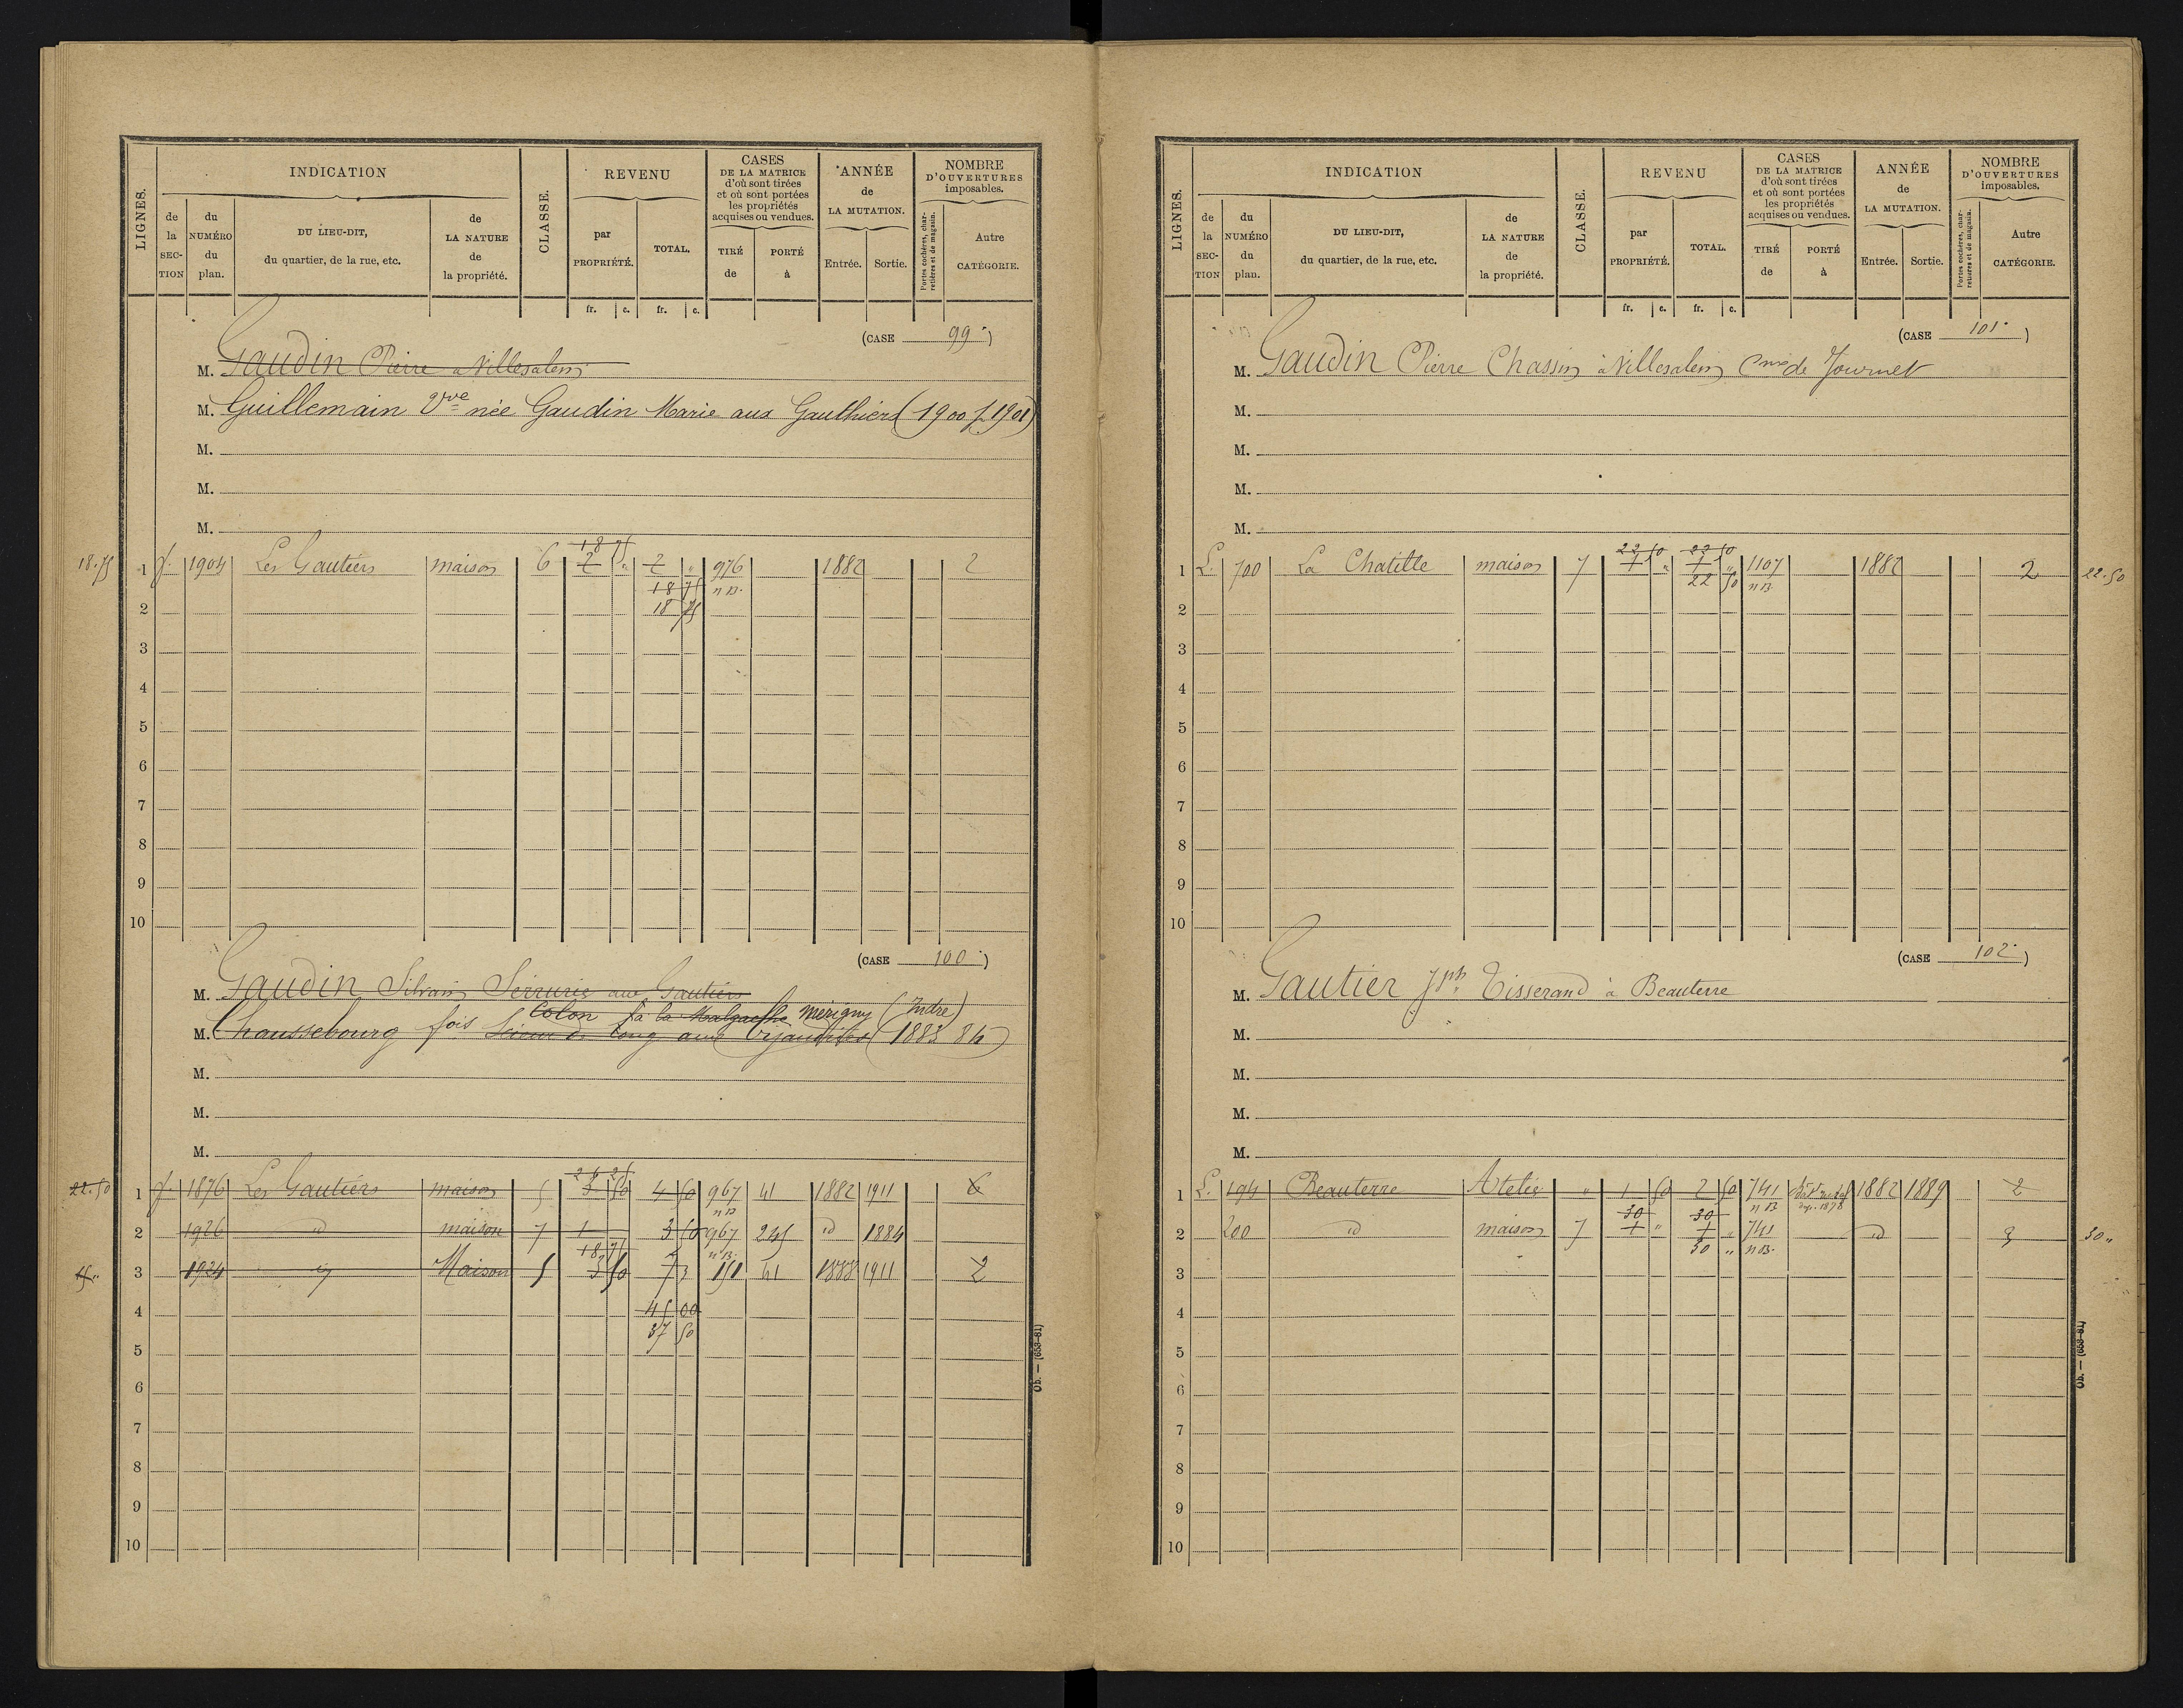 LIGNES. INDICATION CLASSE. REVENU CASES DE LA MATRICE d'où sont tirées et où sont portées les propriétés acquises ou vendues. ANNÉE de LA MUTATION. NOMBRE D'OUVERTURES imposables.
de la SECTION du NUMÉRO du plan. DU LIEU-DIT, du quartier, de la rue, etc. de LA NATURE de la propriété. par PROPRIÉTÉ. TOTAL. TIRÉ de PORTÉ à Entrée. Sortie. Portes cochères, charretières et de magasin. Autre CATÉGORIE.
fr. c. fr. c.
(CASE 99)
M. Gaudin Pierre à Villesalem
M. Guillemain Vve née Gaudin Marie aux Gauthiers (1900 p. 1901)
M.
M.
M.
18 75
18.75 1 J. 1904 Les Gautiers maison 6 2 " 2 " 976 1882 2
18 75 n B.
2 18 75
3
4
5
6
7
8
9
10
(CASE 100)
M. Gaudin Silvain Serrurier aux Gautiers
Colon à la Mérigny (Indre)
M. Chaussebourg fois Scieur de long aux (1883 84)
M.
M.
M.
26 25
22.50 1 J. 1876 Les Gautiers maison 5 3 50 4 50 967 41 1882 1911 6
n B
2 1926 id maison 7 1 3 50 967 245 id 1884
18 75 n B.
15 " 3 1924 id Maison 5 3 50 7 151 41 1888 1911 2
4 45 00
37 50
5
6
7
8
9
10
Ob. — (653-81)
LIGNES. INDICATION CLASSE. REVENU CASES DE LA MATRICE d'où sont tirées et où sont portées les propriétés acquises ou vendues. ANNÉE de LA MUTATION. NOMBRE D'OUVERTURES imposables.
de la SECTION du NUMÉRO du plan. DU LIEU-DIT, du quartier, de la rue, etc. de LA NATURE de la propriété. par PROPRIÉTÉ. TOTAL. TIRÉ de PORTÉ à Entrée. Sortie. Portes cochères, charretières et de magasin. Autre CATÉGORIE.
fr. c. fr. c.
(CASE 101)
M. Gaudin Pierre Chassin à Villesalem Cne de Journet
M.
M.
M.
M.
22 50 22 50
1 L. 700 La Chatille maison 7 1 " 1 " 1107 1882 2 22.50
22 50 n B.
2
3
4
5
6
7
8
9
10
(CASE 102)
M. Gautier Jph Tisserand à Beauterre
M.
M.
M.
M.
1 L. 194 Beauterre Atelier " 1 50 2 50 741 1882 1889 2
30 30 n B 1878
2 200 id maison 7 1 " 1 " 741 id 3 30 "
30 " n B.
3
4
5
6
7
8
9
10
Ob. — (653-81)